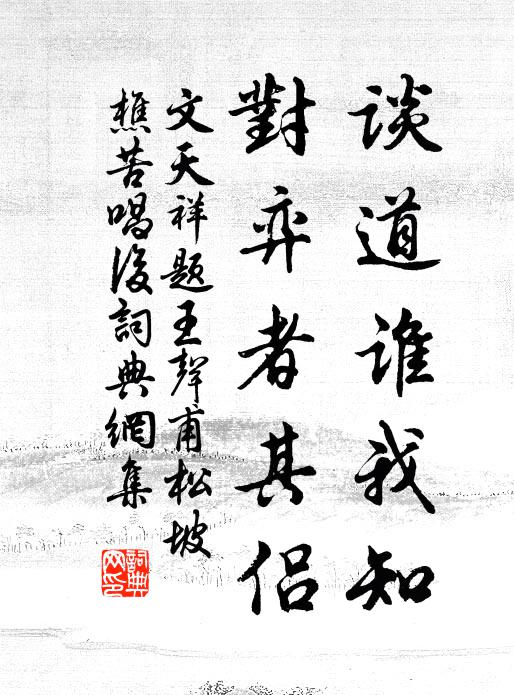 談道谁我知
對弈者其侣
文天祥题王聲甫松坡
樵苦唱後詞典網集
詞典网印